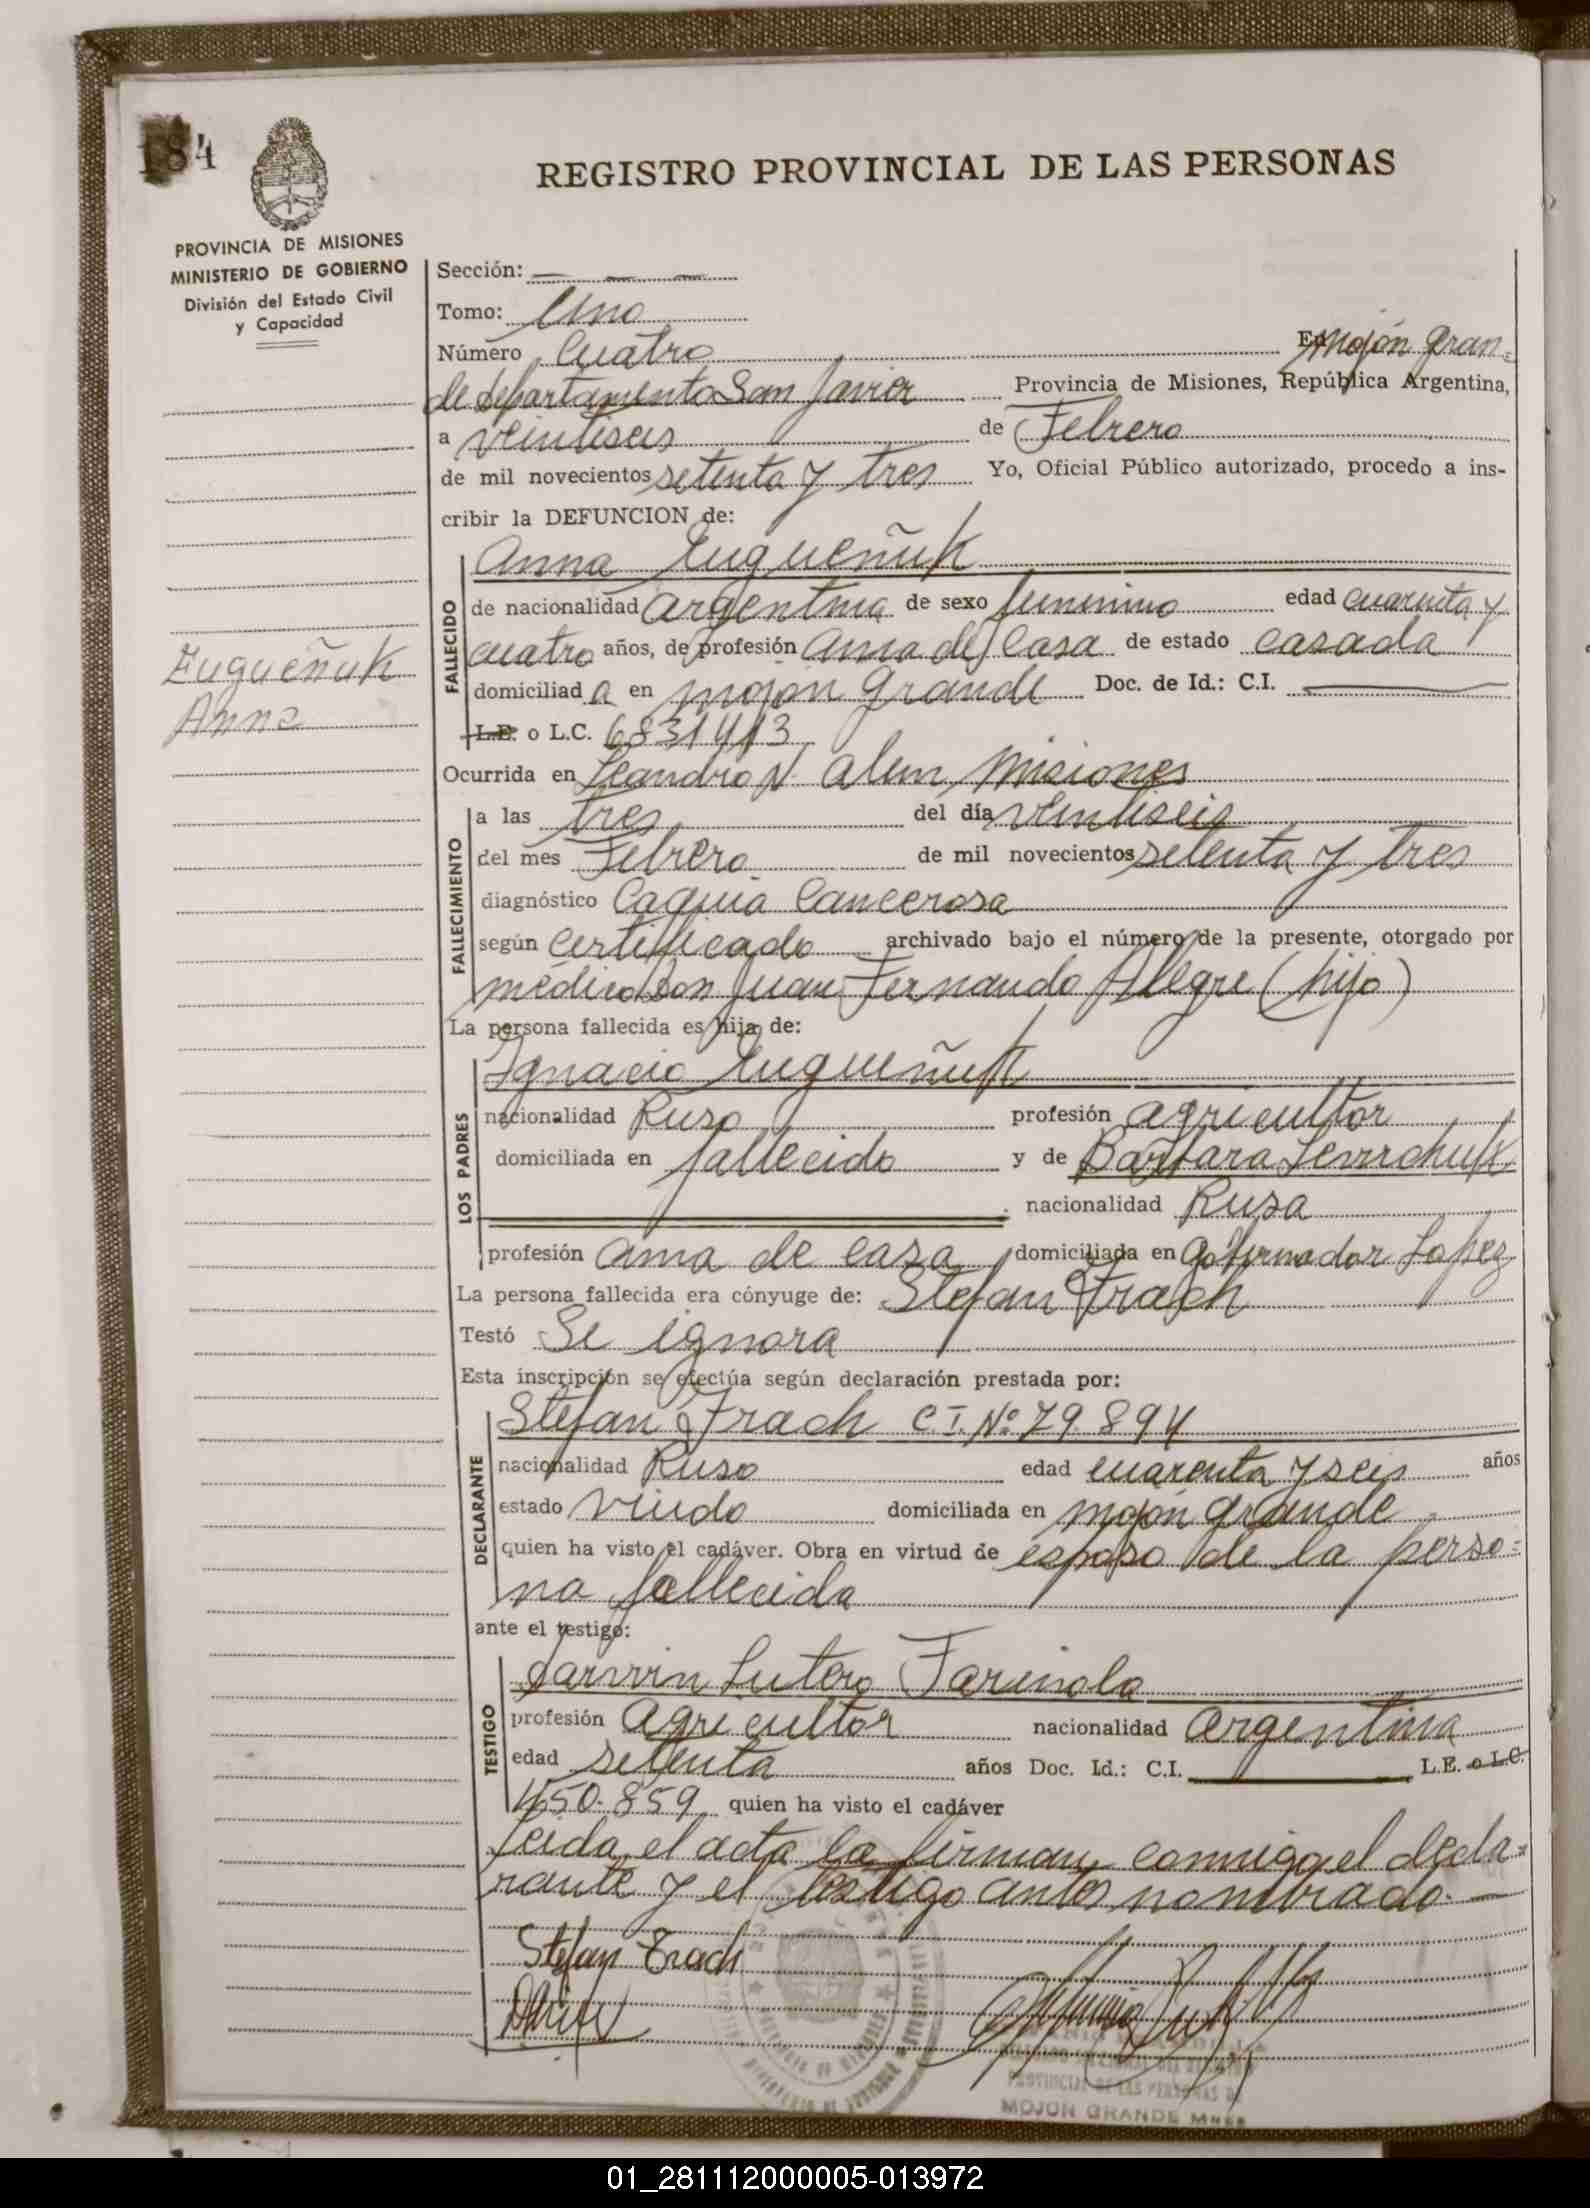 184
REGISTRO PROVINCIAL DE LAS PERSONAS
PROVINCIA DE MISIONES
MINISTERIO DE GOBIERNO
División del Estado Civil
y Capacidad
Sección: — — —
Tomo: Uno
Número Cuatro En Mojón Gran=
de departamento San Javier Provincia de Misiones, República Argentina,
a veintiseis de Febrero
de mil novecientos setenta y tres Yo, Oficial Público autorizado, procedo a ins-
cribir la DEFUNCION de:
Anna Eugueñuk
FALLECIDO
de nacionalidad argentina de sexo femenino edad cuarenta y
cuatro años, de profesión ama de casa de estado casada
domiciliad a en mojón grande Doc. de Id.: C.I. —
L.E. o L.C. 6831413
Eugueñuk
Anna
Ocurrida en Leandro N. Alem, Misiones
FALLECIMIENTO
a las tres del día veintiseis
del mes Febrero de mil novecientos setenta y tres
diagnóstico Caquia Cancerosa
según certificado archivado bajo el número de la presente, otorgado por
médico Don Juan Fernando Alegre (hijo)
La persona fallecida es hija de:
LOS PADRES
Ignacio Eugueñuk
nacionalidad Ruso profesión agricultor
domiciliada en fallecido y de Barbara
nacionalidad Rusa
profesión ama de casa domiciliada en Gobernador Lopez
La persona fallecida era cónyuge de: Stefan Trach
Testó Se ignora
Esta inscripción se efectúa según declaración prestada por:
DECLARANTE
Stefan Trach C.I. Nº 79.894
nacionalidad Ruso edad cuarenta y seis años
estado viudo domiciliada en mojón grande
quien ha visto el cadáver. Obra en virtud de esposo de la perso=
na fallecida
ante el testigo:
TESTIGO
Darwin Lutero Farinola
profesión Agricultor nacionalidad argentina
edad setenta años Doc. Id.: C.I. — L.E. o L.C.
450.859 quien ha visto el cadáver
Leida el acta la firman conmigo el decla=
rante y el testigo antes nombrado. —
Stefan Trach
PROVINCIAL DE LAS PERSONAS
MOJON GRANDE Mnes
01_281112000005-013972